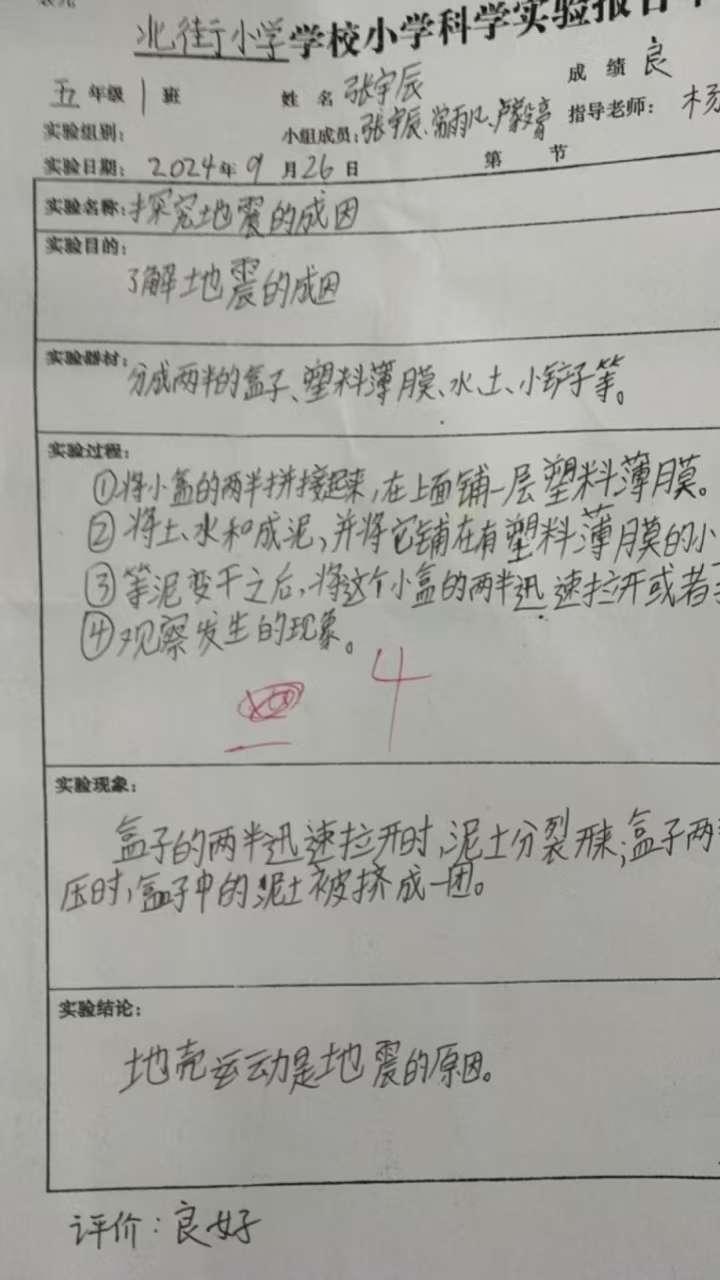 北街小学学校小学科学实验报告单
成绩 良
五年级 1 班 姓名 张宇辰
实验组别: 小组成员: 张宇辰、 指导老师: 杨
实验日期: 2024年9月26日 第 节
实验名称: 探究地震的成因
实验目的:
了解地震的成因
实验器材:
分成两半的盒子、塑料薄膜、水、土、小铲子等。
实验过程:
①将小盒的两半拼接起来,在上面铺一层塑料薄膜。
②将土、水和成泥,并将它铺在有塑料薄膜的小
③等泥变干之后,将这个小盒的两半迅速拉开或者
④观察发生的现象。
4
实验现象:
盒子的两半迅速拉开时,泥土分裂开来;盒子两
压时,盒子中的泥土被挤成一团。
实验结论:
地壳运动是地震的原因。
评价:良好